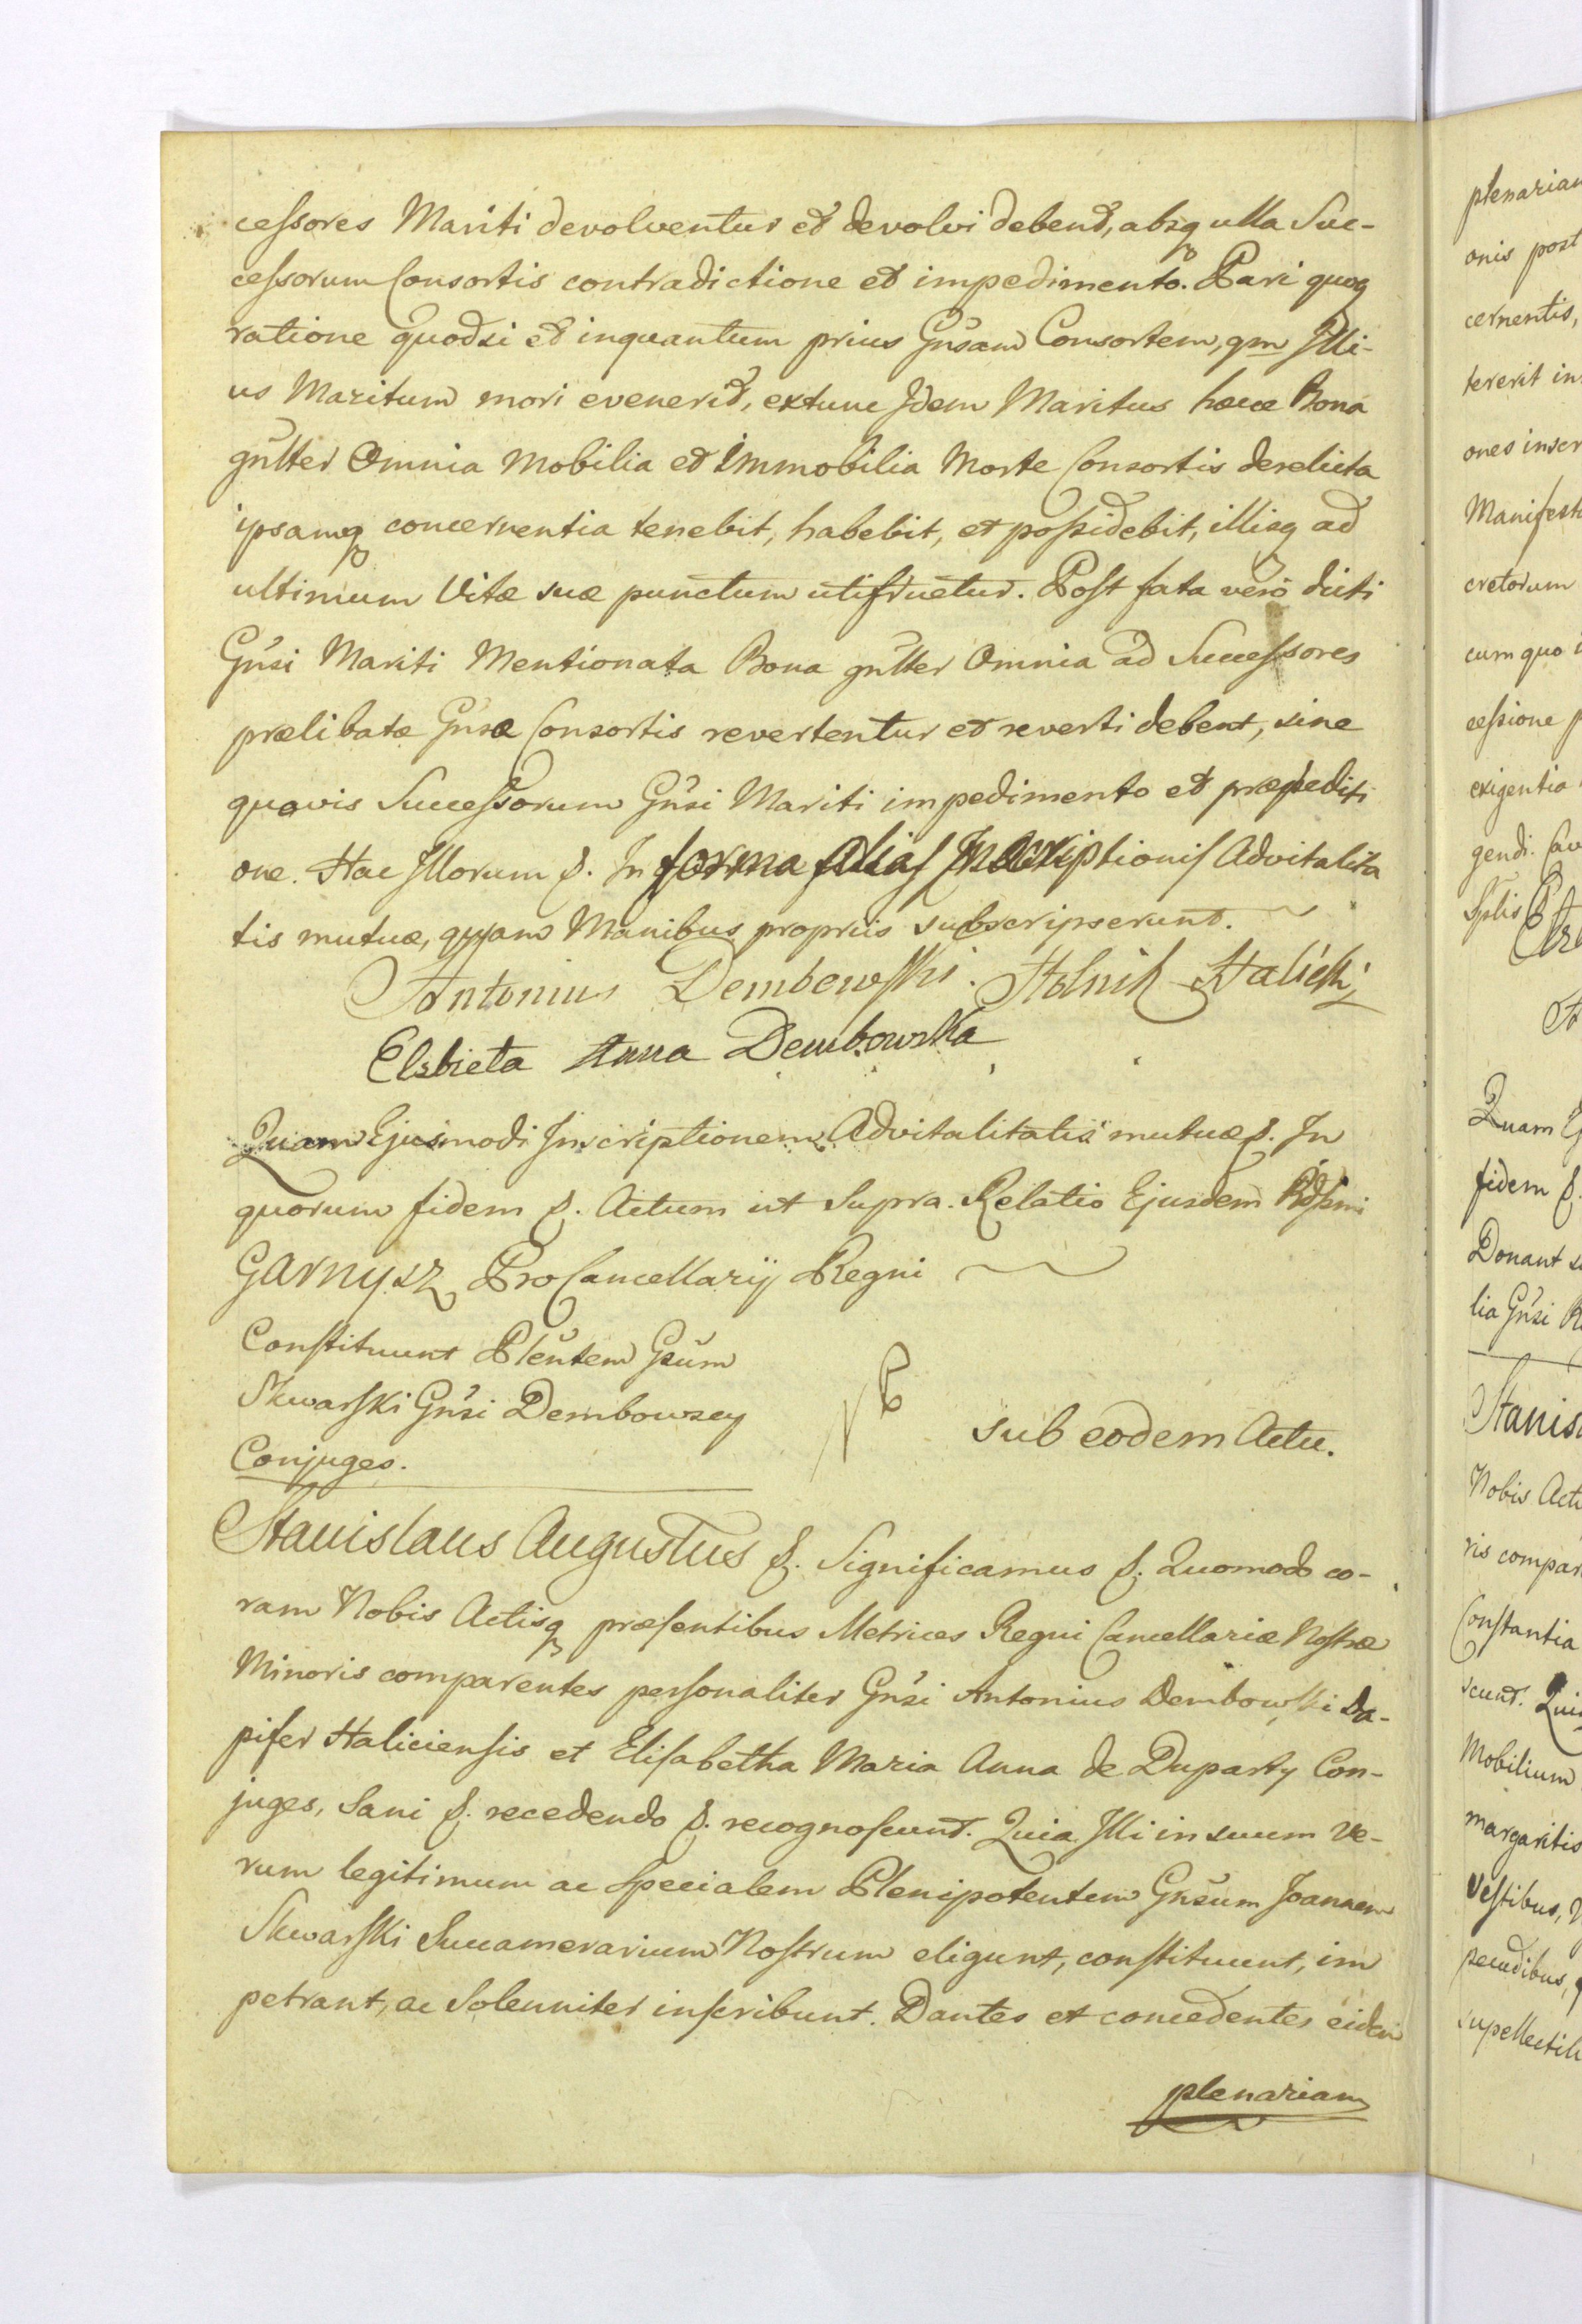 cessores Mariti devolventur et devolvi debent, absq ulla Suc-
cessorum Consortis contradictione et impedimento. Pari quoq
ratione quodsi et inquantum prius Gnsam Consortem, qm Illi-
us Maritum mori evenerit, extunc Idem Maritus hæce Bona
gnlter Omnia Mobilia et Immobilia Morte Consortis derelicta
ipsamq concernentia tenebit, habebit, et possidebit, illisq ad
ultimum Vitæ suæ punctum utifruetur. Post fata verò dicti
Gnsi Mariti Mentionata Bona gnlter Omnia ad Successores
prælibatæ Gnsæ Consortis revertentur et reverti debent, sine
quavis Successorum Gnsi Mariti impedimento et præpediti
one. Hac Illorum &. In forma alias Inscriptionis Advitalita
tis mutuæ, quam Manibus propriis subscripserunt.
Antonius Dembowski. Stolnik Halicki,
Elzbieta Anna Dembowska
Quam Ejusmodi Inscriptionem Advitalitatis mutuæ &. In
quorum fidem &. Actum ut Supra. Relatio Ejusdem
Garnysz ProCancellarij Regni
Constituunt Plentem Gsum
Skwarski Gnsi Dembowscy
Conjuges.
sub eodem Actu.
Stanislaus Augustus &. Significamus &. Quomodo co-
ram Nobis Actisq præsentibus Metrices Regni Cancellariæ Nostræ
Minoris comparentes personaliter Gnsi Antonius Dembowski Da-
pifer Haliciensis et Elisabetha Maria Anna de Duparty Con-
juges, Sani &. recedendo &. recognoscunt. Quia Illi in suum Ve-
rum legitimum ac Specialem Plenipotentem Gnsum Joannem
Skwarski Succamerarium Nostrum eligunt, constituunt, im
petrant, ac Solenniter inscribunt. Dantes et concedentes eidem
plenariam
plenariam
onis post
cernentis,
tererit in
ones inser
Manifest
cretorum
cum quo
cessione
exigentia
gendi. Cav
Quam
fidem &.
Donant
lia Gnsi
Stanis
Nobis Act
ris compar
Constantia
scunt. Qui
Mobilium
margaritis
Vestibus,
pecudibus,
supellectil